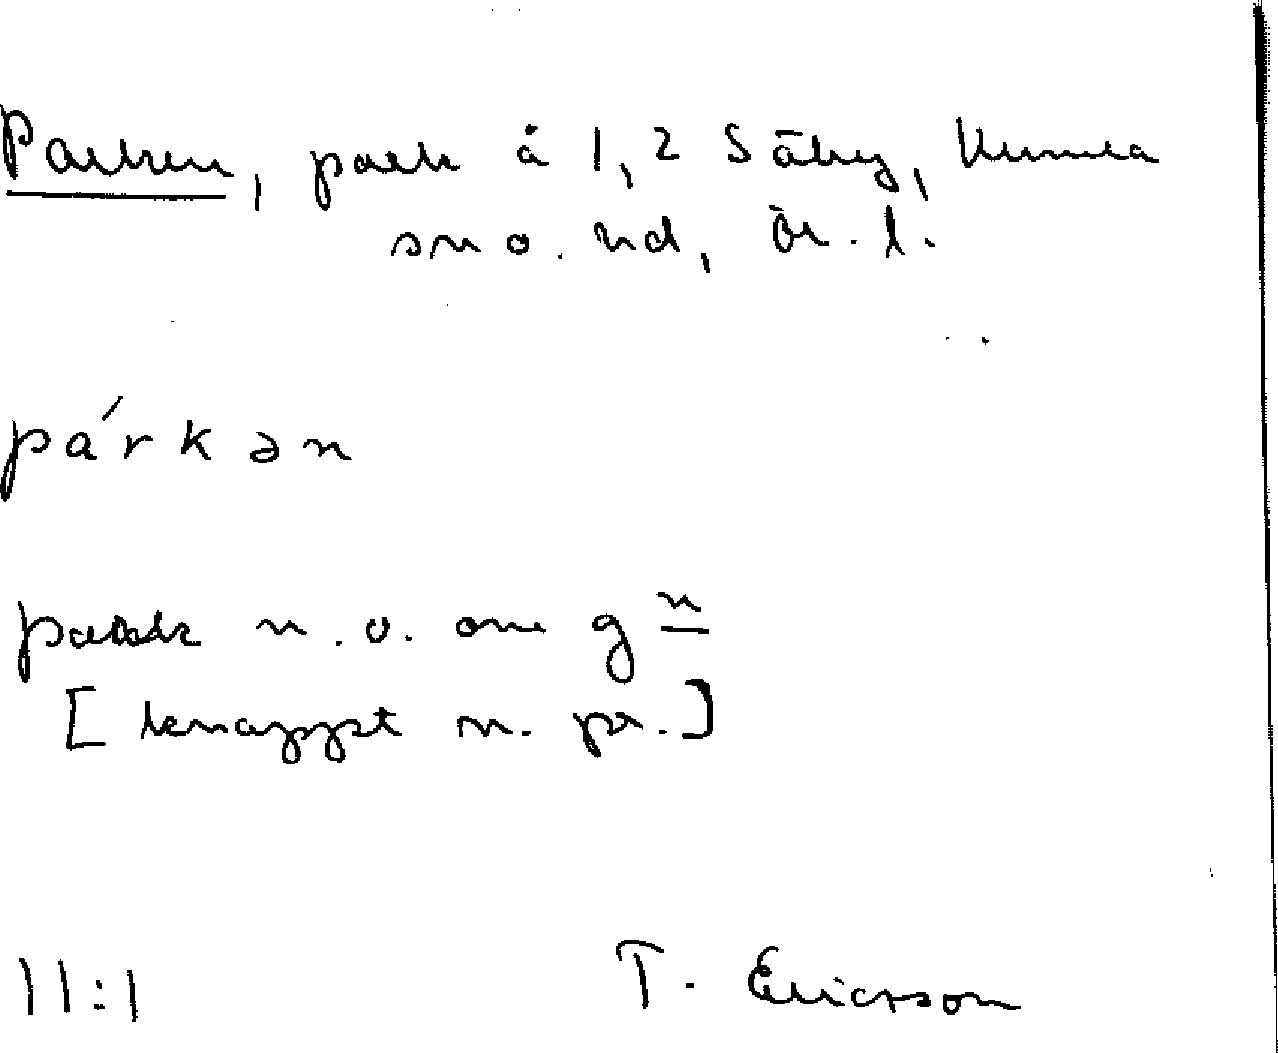 Parken, park å 1,2 Säby, Kumla
sn o. hd, Ör. l.
párkən
park n.o. om g n
[knappt n. pr.]
11:1
T. Ericsson